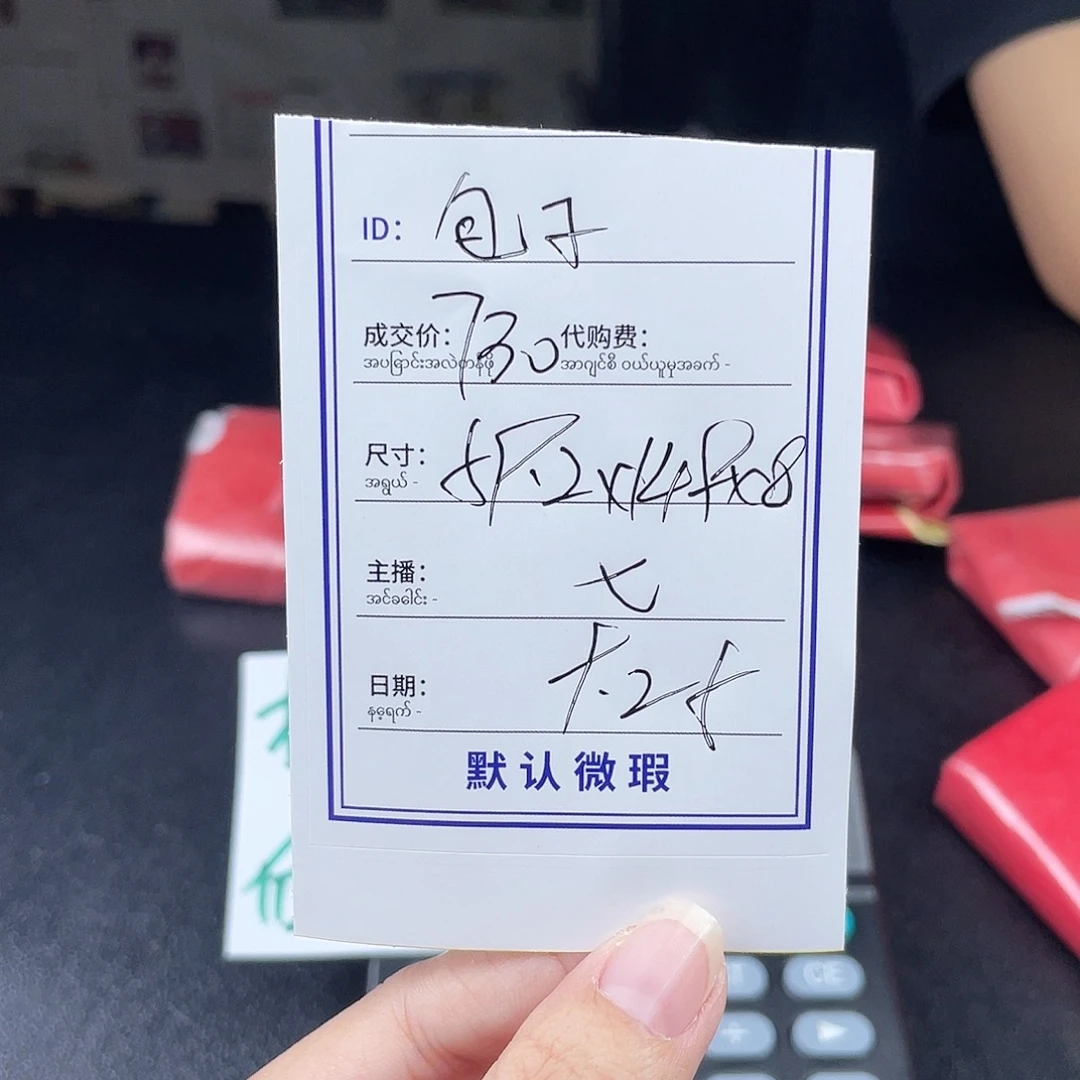 ID: 包子
成交价: 730 代购费:
အပြောင်းအလဲတန်ဖိုး အာဂျင်စီ ဝယ်ယူမှုအခက် -
尺寸:
အရွယ် -
主播: 七
အင်ခေါင်း -
日期:
နေ့ရက် -
默认微瑕
CE